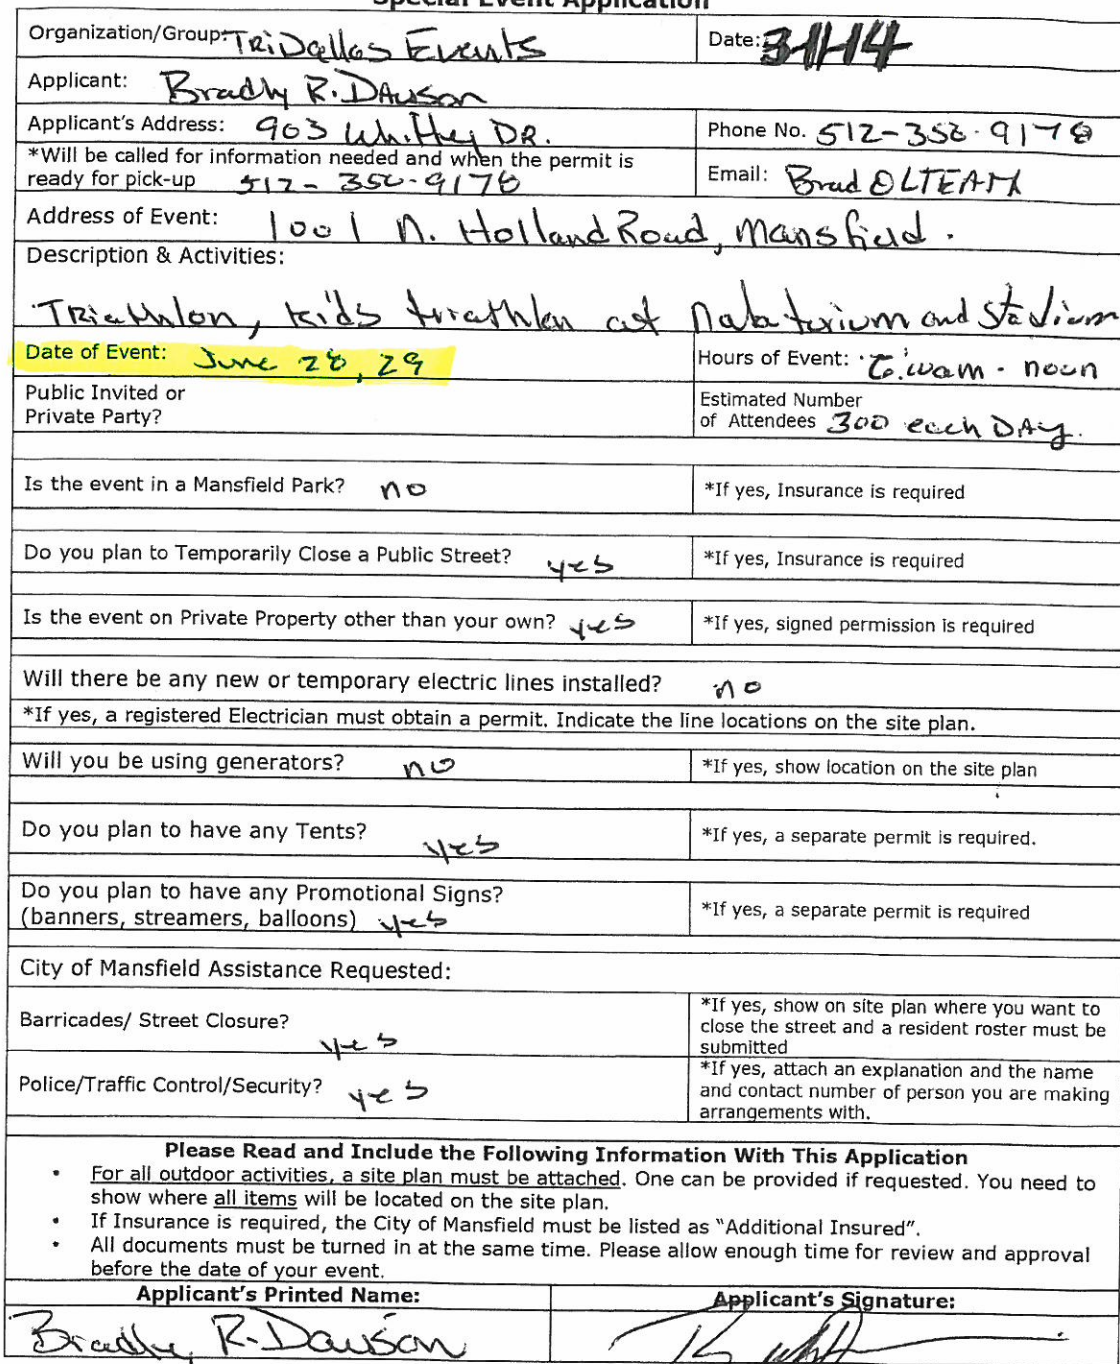 Special Event Application
Organization/Group: TRiDallas Events Date: 3-11-14
Applicant: Bradly R. DAWSON
Applicant's Address: 903 DR. Phone No. 512-350-9178
*Will be called for information needed and when the permit is
ready for pick-up 512-350-9178 Email: Brad@LTEAM
Address of Event: 1001 N. Holland Road, Mansfield.
Description & Activities:
TRiathlon, kids triathlon at natatorium and stadium
Date of Event: June 28, 29 Hours of Event: noon
Public Invited or
Private Party?
Estimated Number
of Attendees 300 each DAy.
Is the event in a Mansfield Park? no *If yes, Insurance is required
Do you plan to Temporarily Close a Public Street? yes *If yes, Insurance is required
Is the event on Private Property other than your own? yes *If yes, signed permission is required
Will there be any new or temporary electric lines installed? no
*If yes, a registered Electrician must obtain a permit. Indicate the line locations on the site plan.
Will you be using generators? no *If yes, show location on the site plan
Do you plan to have any Tents? yes *If yes, a separate permit is required.
Do you plan to have any Promotional Signs?
(banners, streamers, balloons) yes *If yes, a separate permit is required
City of Mansfield Assistance Requested:
Barricades/ Street Closure? yes
*If yes, show on site plan where you want to
close the street and a resident roster must be
submitted
Police/Traffic Control/Security? yes
*If yes, attach an explanation and the name
and contact number of person you are making
arrangements with.
Please Read and Include the Following Information With This Application
• For all outdoor activities, a site plan must be attached. One can be provided if requested. You need to
show where all items will be located on the site plan.
• If Insurance is required, the City of Mansfield must be listed as "Additional Insured".
• All documents must be turned in at the same time. Please allow enough time for review and approval
before the date of your event.
Applicant's Printed Name: Applicant's Signature:
Bradly R. Dawson